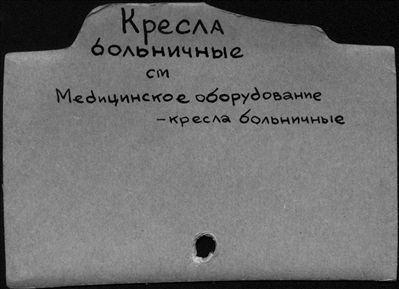 Кресла
больничные
см
Медицинское оборудование
-кресла больничные